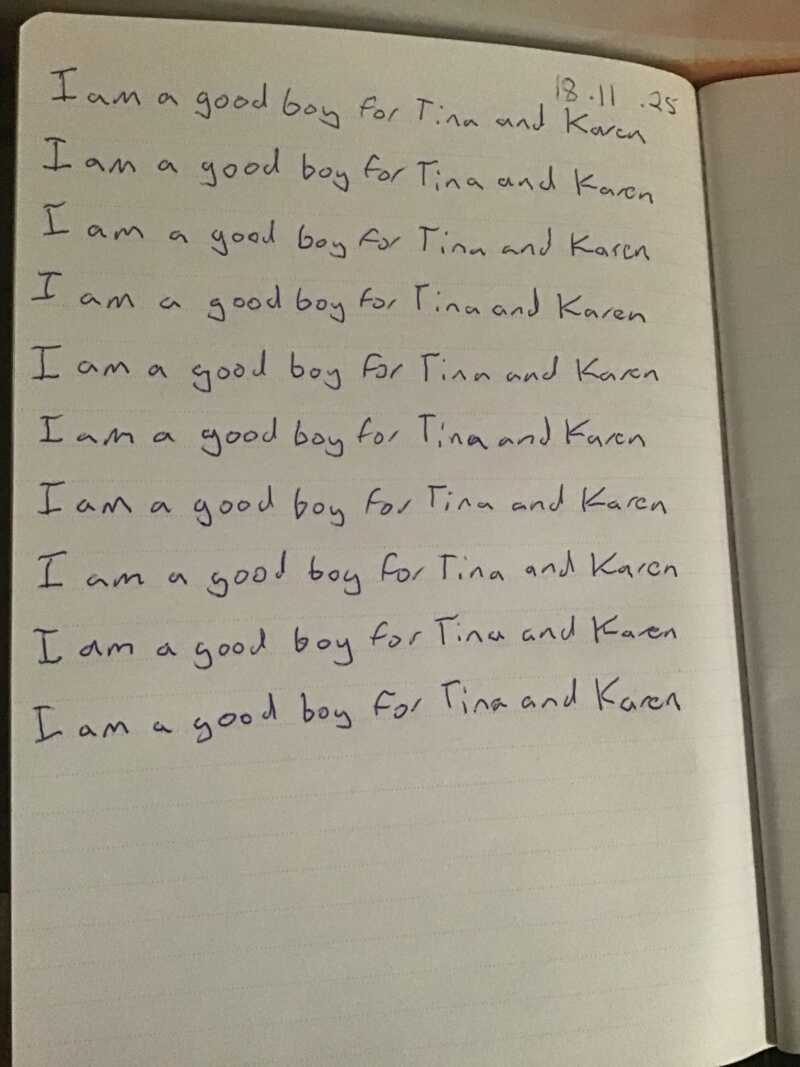 18.11.25
I am a good boy for Tina and Karen
I am a good boy for Tina and Karen
I am a good boy for Tina and Karen
I am a good boy for Tina and Karen
I am a good boy for Tina and Karen
I am a good boy for Tina and Karen
I am a good boy for Tina and Karen
I am a good boy for Tina and Karen
I am a good boy for Tina and Karen
I am a good boy for Tina and Karen